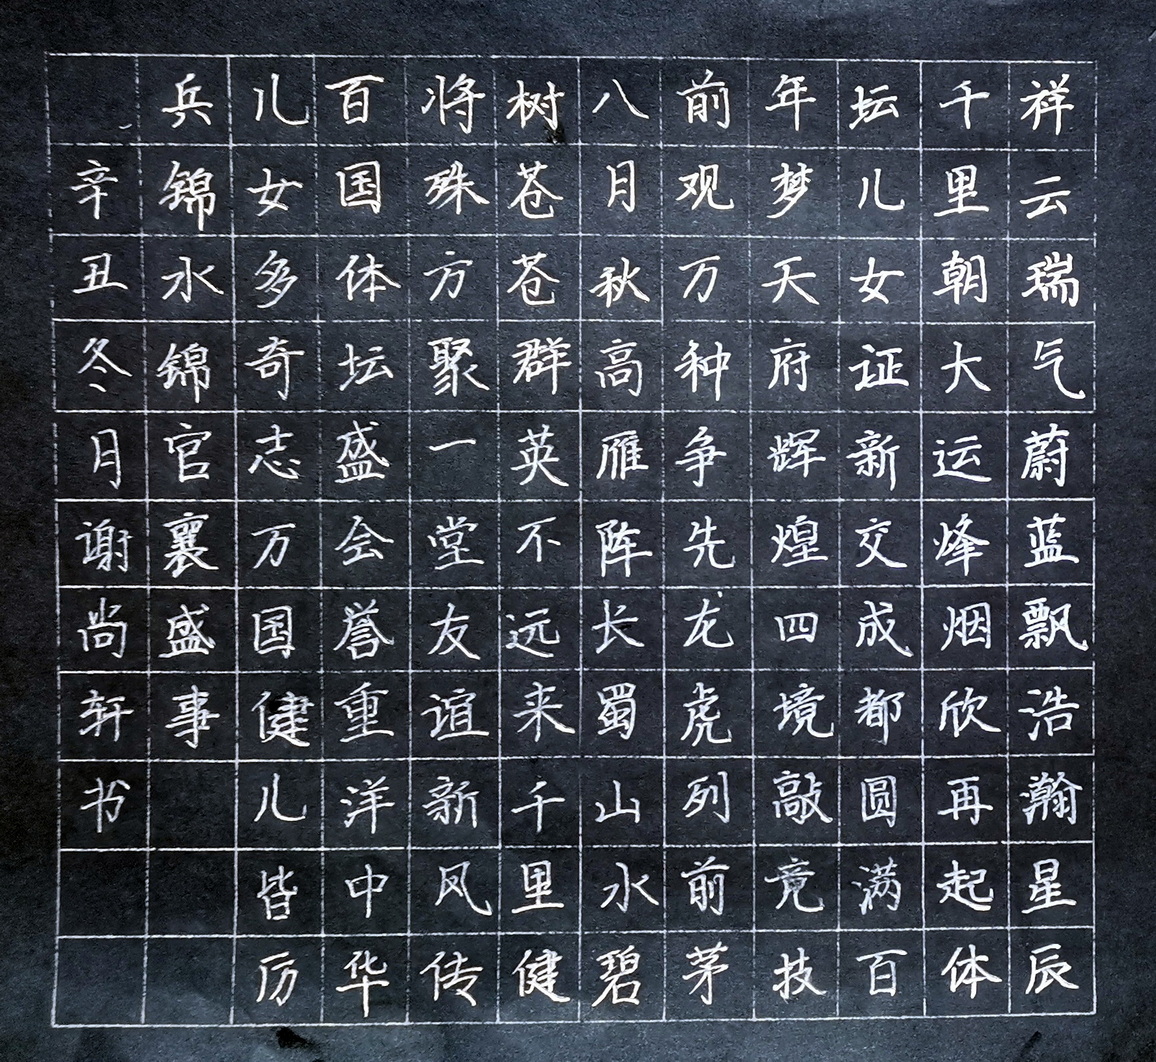 祥云瑞气蔚蓝飘浩瀚星辰
千里朝大运烽烟欣再起体
坛儿女证新交成都圆满百
年梦天府辉煌四境敲竟技
前观万种争先龙虎列前茅
八月秋高雁阵长蜀山水碧
树苍苍群英不远来千里健
将殊方聚一堂友谊新风传
百国体坛盛会誉重洋中华
儿女多奇志万国健儿皆厉
兵锦水锦官襄盛事
辛丑冬月谢尚轩书